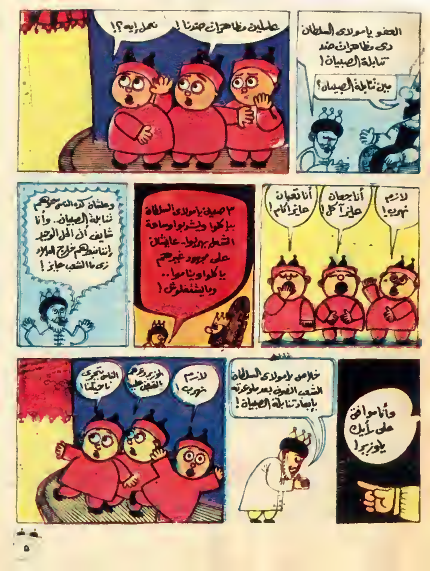 العفو يا مولاى السلطان
دى مظاهرات ضد
تنابلة الصبيان!
مين تنابلة الصبيان؟
عاملين مظاهرات ضدنا!
نعمل إيه؟!
لازم
نهرب!
أنا جعان
عايز آكل!
أنا تعبان
عايز أنام
٣ صبيان يا مولاى السلطان
بياكلوا ويشربوا وسايبين
الشعب
على مجهود غيرهم
ياكلوا ويناموا..
وما بيشتغلوش!
وعلشان كده الناس
تنابلة الصبيان.. وأنا
شايف أن الحل الوحيد
خارج البلاد
زى ما الشعب عايز!
وأنا موافق
على رأيك
يا وزير!
خلاص يا مولاى السلطان
الشعب انصرف بعد ما وعدته
بإبعاد تنابلة الصبيان!
لازم
نهرب!
الوزير
الناس بتجرى
ناحيتنا!
٥